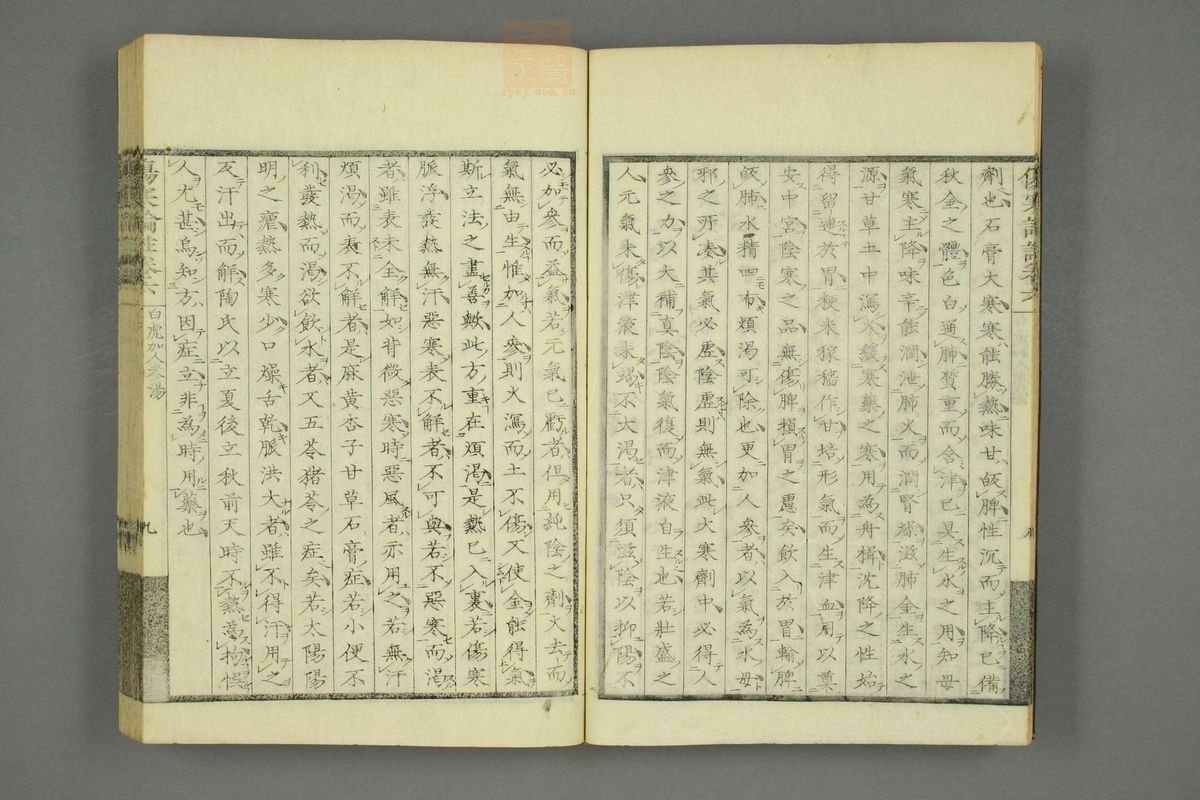 劑也石膏大寒寒能勝熱味甘皈脾性沉而主降已備
秋金之體色白通肺質重而含津已具生水之用知母
氣寒主降味辛能潤泄肺火而潤腎燥滋肺金生水之
源甘草土中瀉火緩寒藥之寒用為舟楫沈降之性始
得留連於胃粳米稼穡作甘培形氣而生津血用以奠
安中宮陰寒之品無傷脾損胃之慮矣飲入於胃輸脾
皈肺水精四布煩渴可除也更加人參者以氣為水母
邪之所湊其氣必虛陰虛則無氣此大寒劑中必得人
參之力以大補真陰陰氣復而津液自生也若壯盛之
人元氣未傷津液未竭不大渴者只須滋陰以抑陽不
必加參而益氣若元氣已虧者但用純陰之劑火去而
氣無由生惟加人參則火瀉而土不傷又使金能得氣
斯立法之盡善歟此方重在煩渴是熱已入裏若傷寒
脈浮發熱無汗惡寒表不解者不可與若不惡寒而渴
者雖表未全解如背微惡寒時惡風者亦用之若無汗
煩渴而表不解者是麻黃杏子甘草石膏症若小便不
利發熱而渴欲飲水者又五苓猪苓之症矣若太陽陽
明之瘧熱多寒少口燥舌乾脈洪大者雖不得汗用之
反汗出而解陶氏以立夏後立秋前天時不熱為拘悞
人尤甚烏知方因症立非為時用藥也
傷寒論註卷六
白虎加人參湯
九
zysj.com.cn